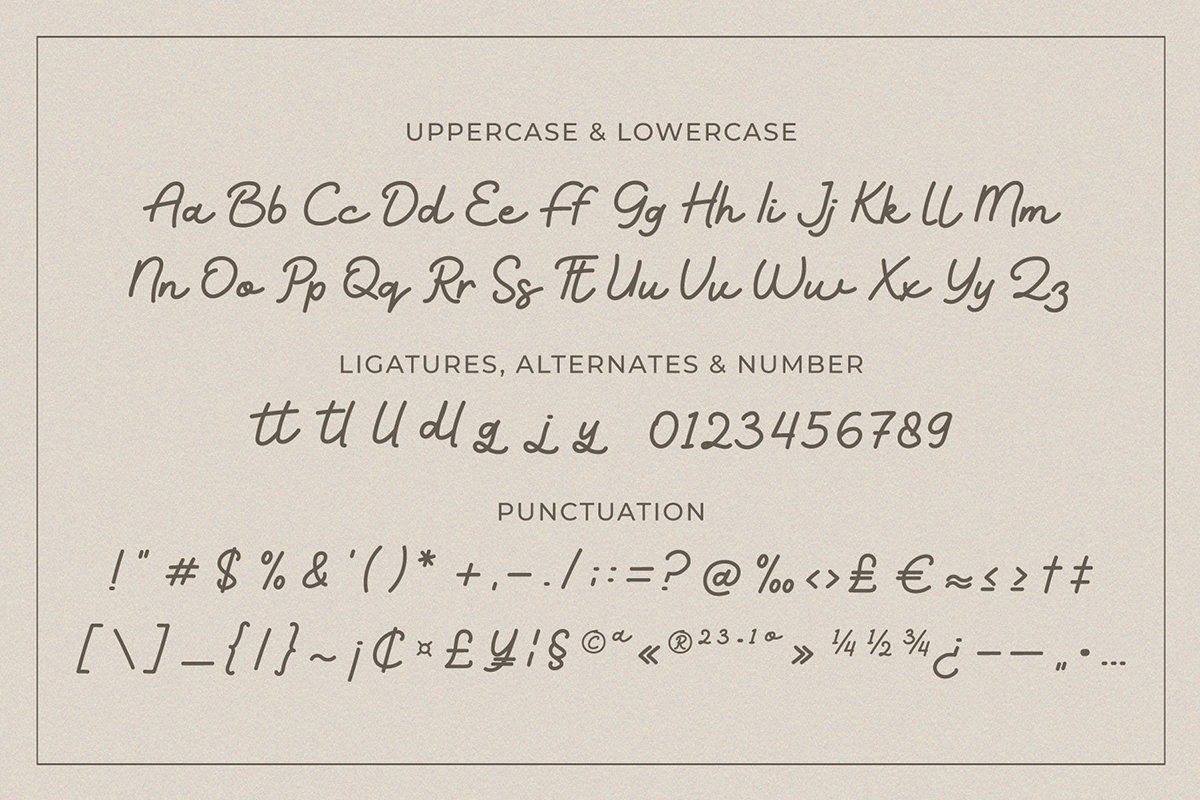 UPPERCASE & LOWERCASE
Aa Bb Cc Dd Ee Ff Gg Hh Ii Jj Kk Ll Mm
Nn Oo Pp Qq Rr Ss Tt Uu Vv Ww Xx Yy Zz
LIGATURES, ALTERNATES & NUMBER
tt tl ll dl g j y 0123456789
PUNCTUATION
! " # $ % & ' ( ) * + , – . / ; : = ? @ ‰ < > ₤ € ≈ ≤ ≥ † ‡
[ \ ] _ { | } ~ ¡ ₵ ¤ £ ¥ ¦ § © ª « ® ² ³ - ¹ º » ¼ ½ ¾ ¿ – — „ • …